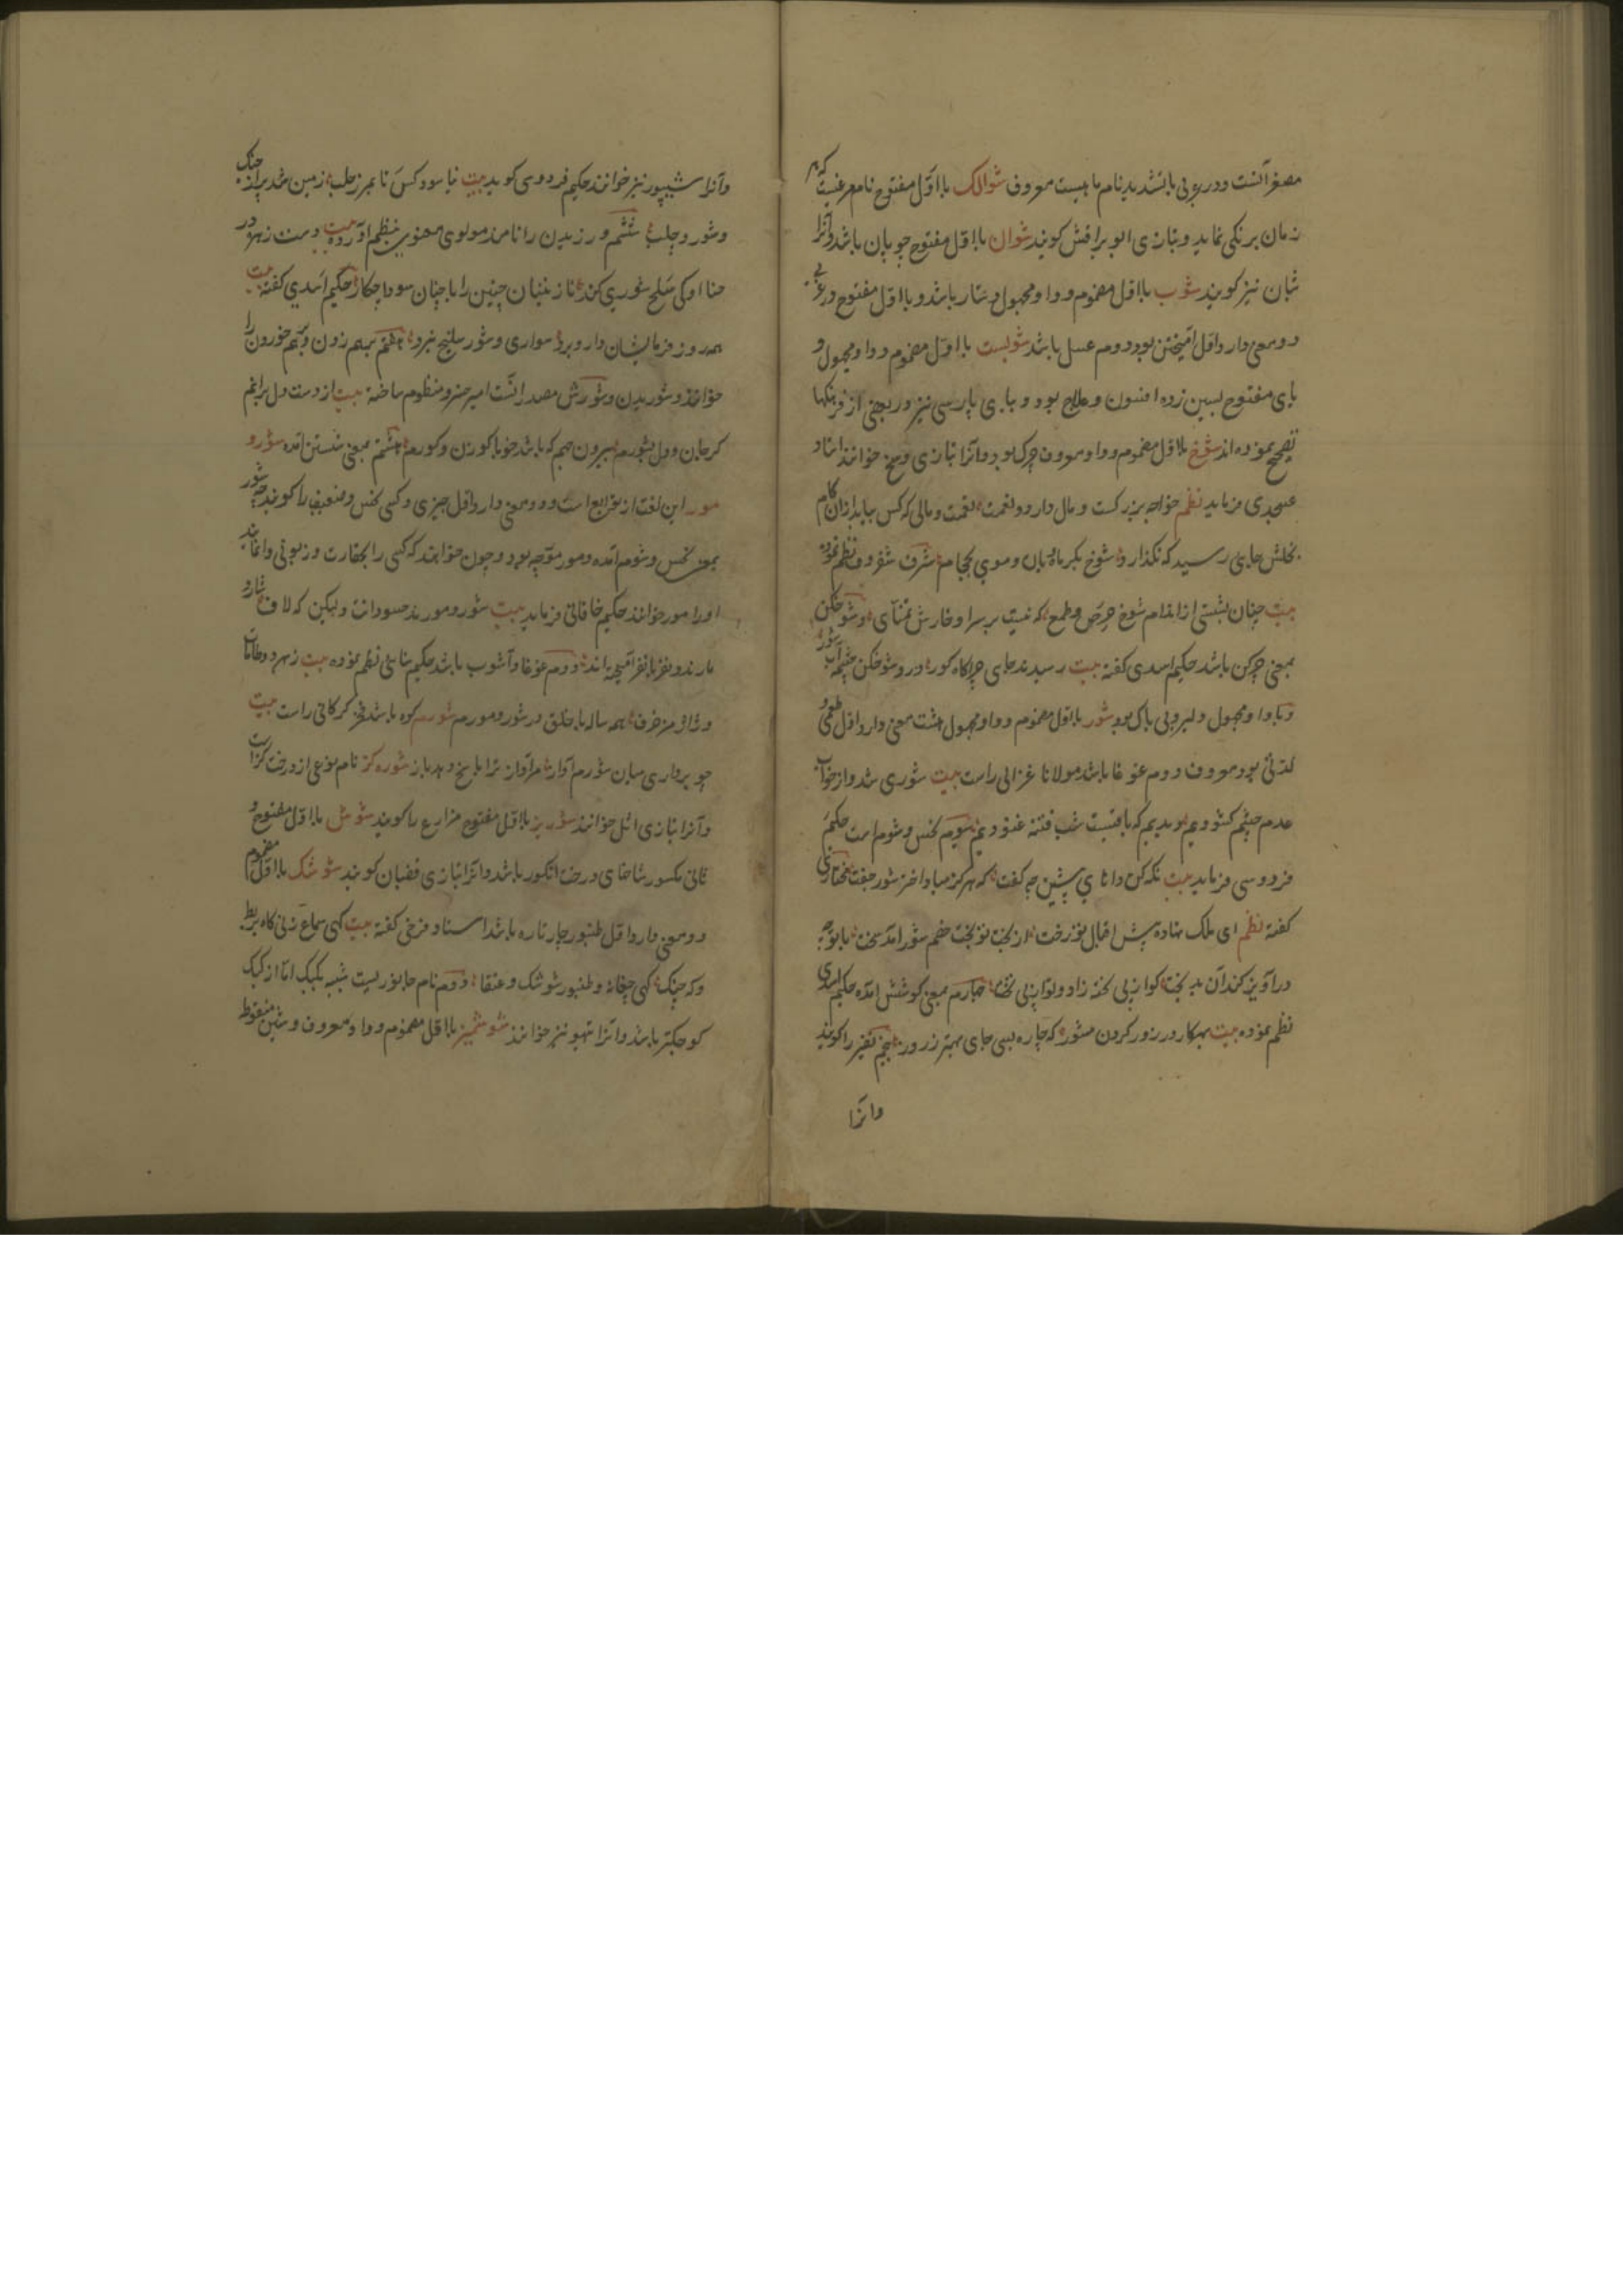 مصغر آنست و در عربی با تشدید نام ماهیست معروف شوالک با اول مفتوح نام مرغیست که هر
زمان برنکی نماید و بتازی ابو براقش کویند شوان با اول مفتوح چوپان باشد و آنرا
شبان نیز کویند شوب با اول مضموم و واو مجهول دستار باشد و با اول مفتوح در عربی
دو معنی دارد اول آمیختن بود دوم عسل باشد شوبست با اول مضموم و واو مجهول و
بای مفتوح بسین زده افسون و علاج بود و ببای پارسی نیز در بعضی از فرهنکها
تصحیح نموده اند شوخ با اول مضموم و واو معروف چرک بود و آنرا بتازی وسخ خوانند استاد
عسجدی فرماید نظم خواجه بزرکست و مال دارد و نعمت نعمت و مالی که کس نیابد ازان کام
بخلش جایی رسید که نکذارد شوخ بکرمابه بان و موی بحجام شرف شفروه نظم نموده
بیت چنان بشستی از اندام شوخ حرص و طمع که نیست بر سر او خارش تمنای و شوخکن
بمعنی چرکن باشد حکیم اسدی کفته بیت رسیدند جای چراکاه کور درو شوخکن چشمه آب شور
و با واو مجهول دلیر و بی باک بود شور با اول مضموم و واو مجهول هشت معنی دارد اول طعمی و
لذتی بود معروف دوم غوغا باشد مولانا غزالی راست بیت شوری شد و از خواب
عدم چشم کشودیم دیدیم که باقیست شب فتنه غنودیم سیوم نحس و شوم است حکیم
فردوسی فرماید بیت نکه کن دانای پیشین چه کفت که هرکز مباد اختر شور جفت مختاری
کفته نظم ای ملک نهاده پیش اقبال تو رخت از بخت تو بخت خصم شور آمد سخت با تو چه
درآویز کند آن بد بخت کو از پی تخته زاد و تو از پی تخت چهارم بمعنی کوشش آمده حکیم اسدی
نظم نموده بیت بهرکار در زور کردن مشور که چاره بسی جای بهتر ز زور پنجم نفیر را کویند
وآنرا
وآنرا شیپور نیز خوانند حکیم فردوسی کوید بیت نیاسود کس تا بمرز حلب زمین شد پر از جنک
و شور و جلب ششم ورزیدن را نامند مولوی معنوی بنظم آورده بیت دست زهره در
حنا او کی سلح شوری کند ناز بینان چنین را با چنان سودا چکار حکیم اسدی کفته بیت
همه روز فرمایشان دار و برد سواری و شور سلیح نبرد هفتم بهم زدن و برهم خوردن را
خوانند و شوریدن و شورش مصدر آنست امیر خسرو منظوم ساخته بیت از دست دل برانم
کز جان و دل بشورم بیرون جهم که باشد خو با کوزن و کورم هشتم بمعنی شستن آمده شور و
مور این لغت از توابع است و دو معنی دارد اول چیزی و کسی نحس و ضعیف را کویند چه شور
بمعنی نحس و شوم آمده و مور مورچه بود و چون خواهند که کسی را بحقارت و زبونی وانمایند
او را مور خوانند حکیم خاقانی فرماید بیت شور و مورند حسودانت ولیکن که لاف شار و
مارند و نفر با نفر آمیخته اند دوم غوغا و آشوب باشد حکیم سنایی نظم نموده بیت
هر ساله با خلق در شور و مورم شورم کوه باشد فخر کرکانی راست بیت
چو برداری میان شورم آواز مر آواز ترا پاسخ دهد باز شوره کز نام نوعی از درخت کز است
وآنرا بتازی اثل خوانند شوریز با اول مفتوح مزارع را کویند شوش با اول مفتوح و
ثانی مکسور شاخهای درخت انکور باشد و آنرا بتازی قضبان کویند شوشک با اول مضموم
دو معنی دارد اول طنبور چار تاره باشد استاد فرخی کفته بیت کهی سماع زنی کاه بربط
و که چنک کهی چغانه و طنبور شوشک و عنقا دوم نام جانوریست شبیه بکبک اما از کبک
کوچکتر باشد و آنرا تیهو نیز خوانند شوشمیز با اول مضموم و واو معروف و شین منقوطه